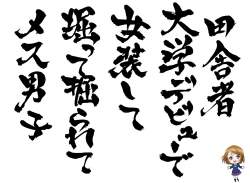 田舎者
大学デビューで
女装して
掘って掘られて
メス男子